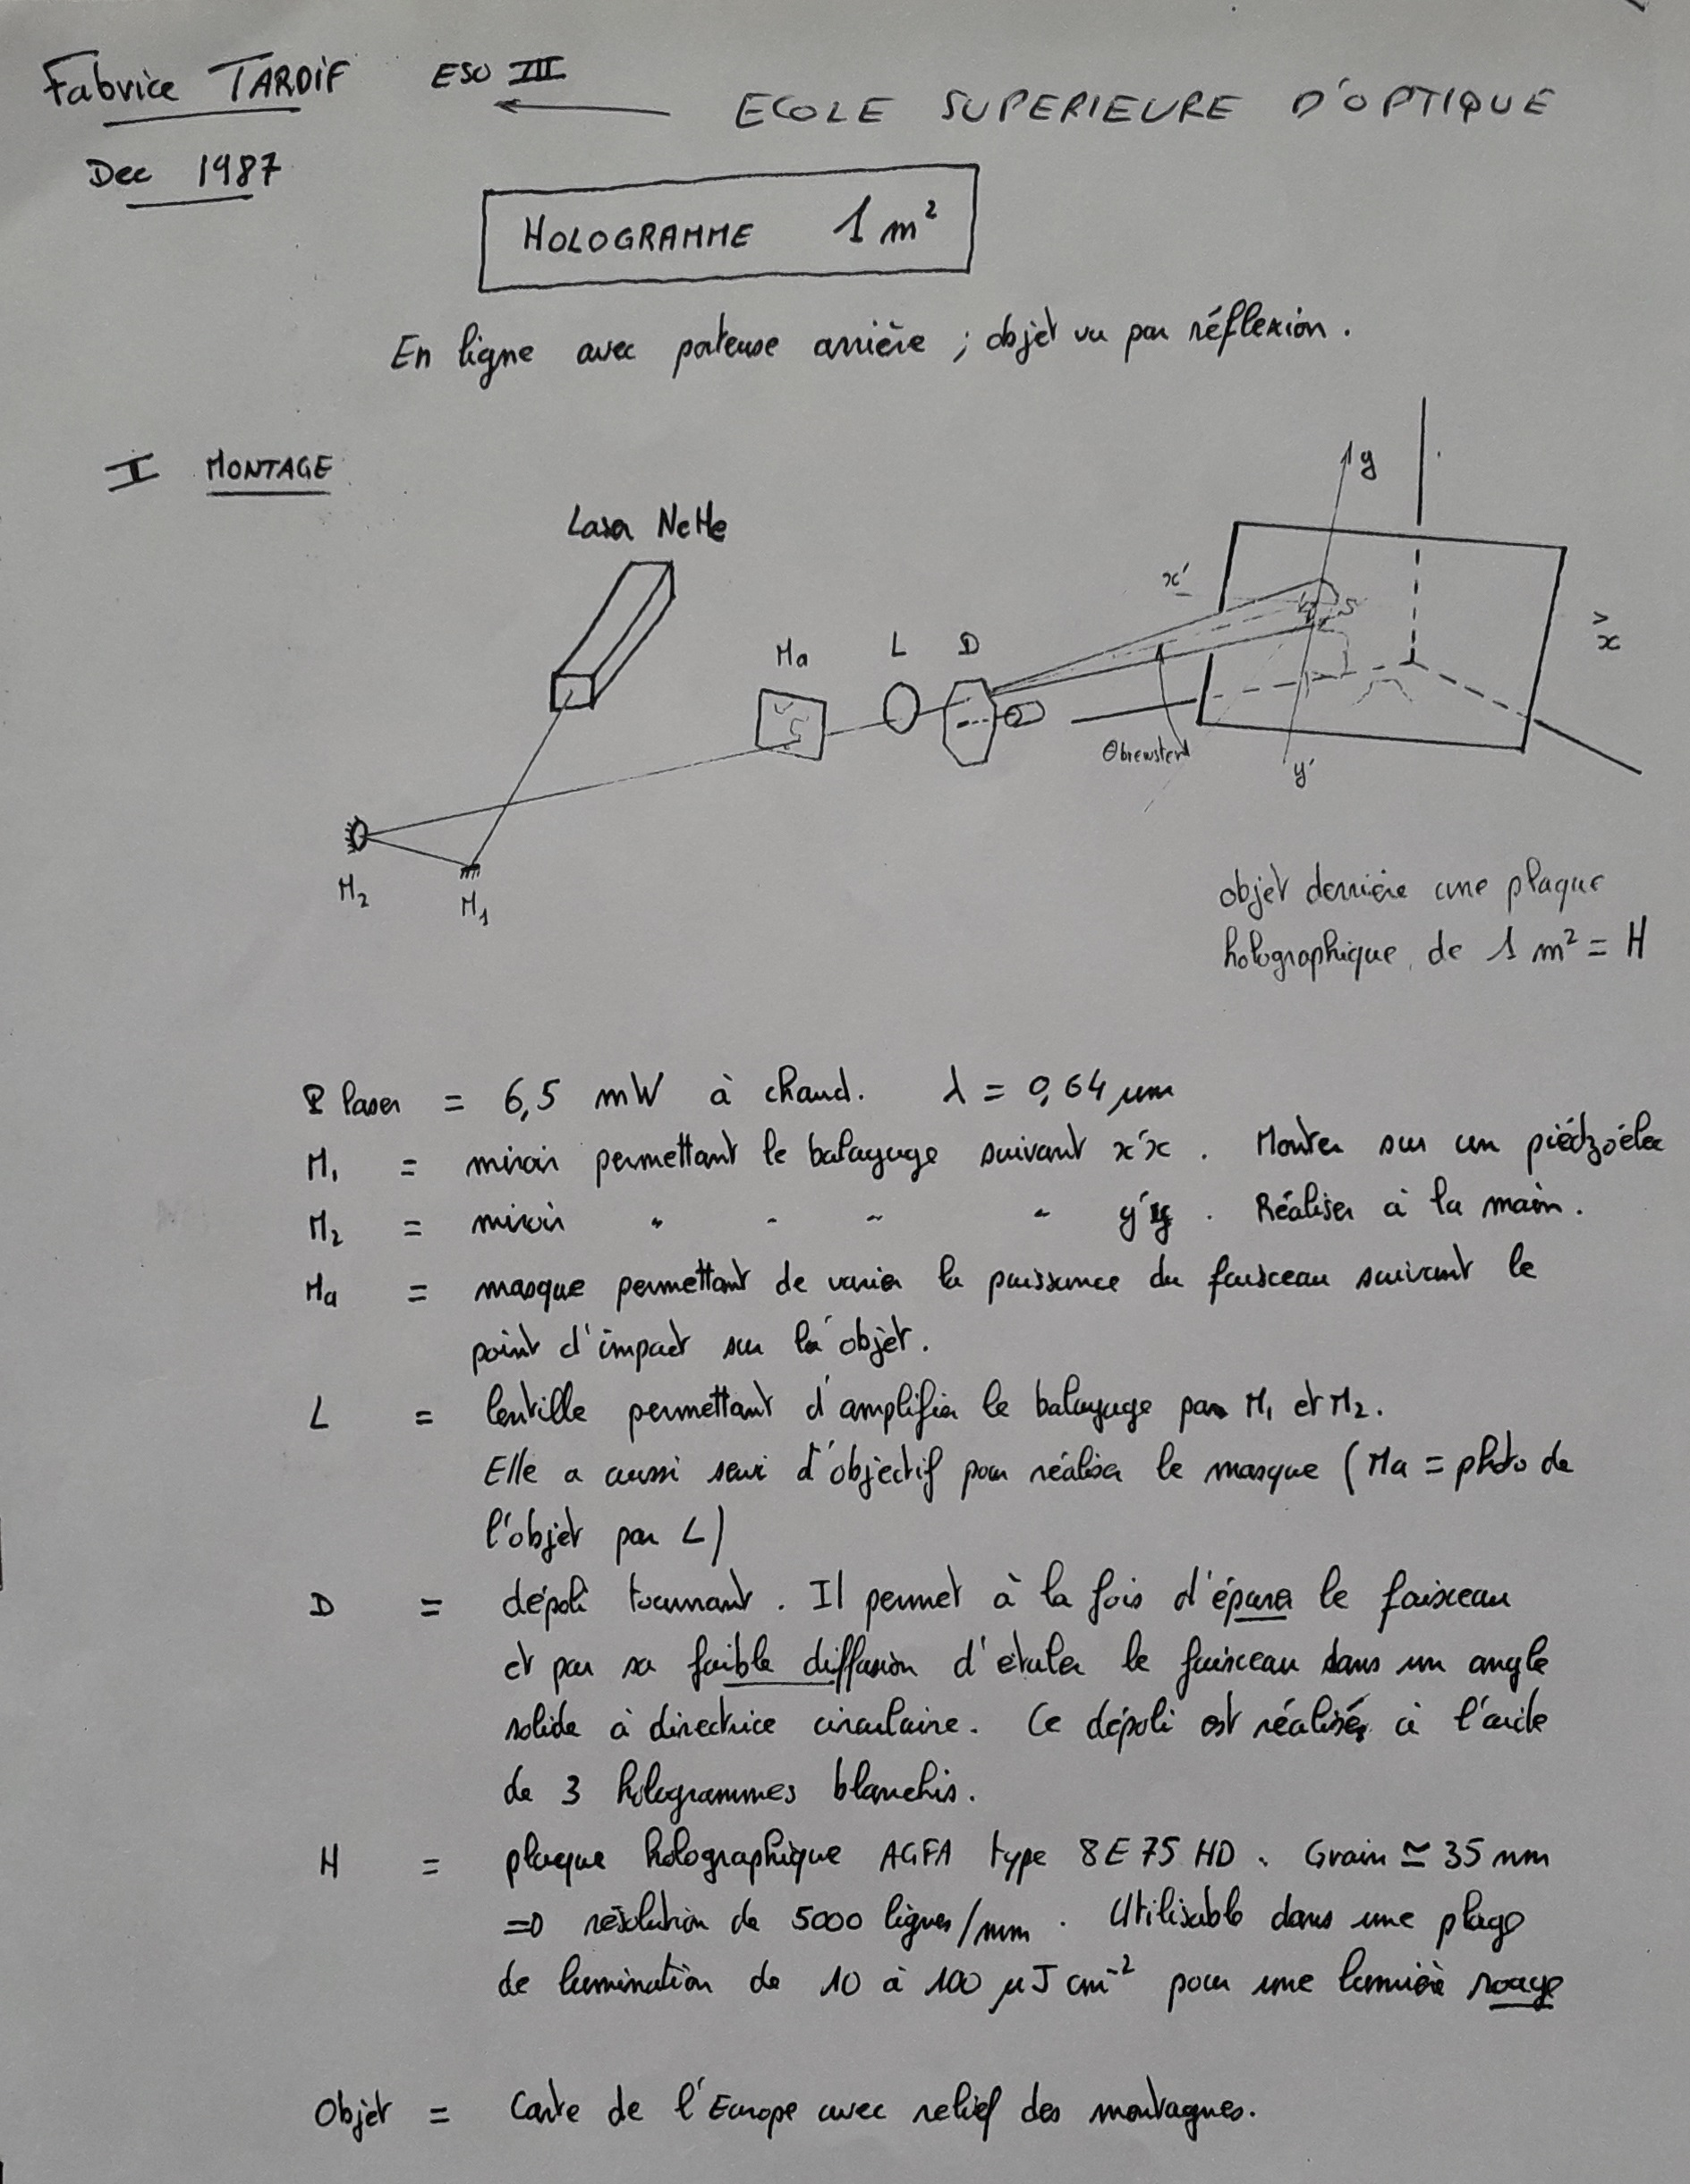 Fabrice TARDIF ESO III ECOLE SUPERIEURE D'OPTIQUE
Dec 1987
HOLOGRAMME 1 m²
En ligne avec porteuse arrière ; objet vu par réflexion.
I MONTAGE
Laser NeHe
y
x'
x
Ma L D
θbrewster
y'
M2
M1
objet derrière une plaque
holographique de 1 m² = H
P laser = 6,5 mW à chaud. λ = 0,64 µm
M1 = miroir permettant le balayage suivant x'x. Monter sur un piédzoélec
M2 = miroir " " " " y'y. Réaliser à la main.
Ma = masque permettant de varier la puissance du faisceau suivant le
point d'impact sur la objet.
L = lentille permettant d'amplifier le balayage par M1 et M2.
Elle a aussi servi d'objectif pour réaliser le masque (Ma = photo de
l'objet par L)
D = dépoli tournant. Il permet à la fois d'épurer le faisceau
et par sa faible diffusion d'étaler le faisceau dans un angle
solide à directrice circulaire. Ce dépoli est réalisé à l'aide
de 3 hologrammes blanchis.
H = plaque holographique AGFA type 8E75 HD. Grain ≃ 35 nm
⇒ résolution de 5000 lignes/mm. Utilisable dans une plage
de lumination de 10 à 100 µJ cm⁻² pour une lumière rouge
Objet = Carte de l'Europe avec relief des montagnes.